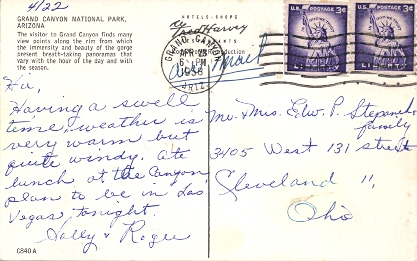 4/22
GRAND CANYON NATIONAL PARK,
ARIZONA
The visitor to Grand Canyon finds many
view points along the rim from which
the immensity and beauty of the gorge
present breath-taking panoramas that
vary with the hour of the day and with
the season.
Hi,
Having a swell
time, weather is
very warm but
quite windy. Ate
lunch at the Canyon
plan to be in Las
Vegas tonight.
Sally & Roger
C840A
HOTELS-SHOPS
Fred Harvey
GRAND CANYON
APR 23
6 PM
1958
ARIZ.
Air Mail
U.S. POSTAGE 3¢
U.S. POSTAGE 3¢
Mr. & Mrs. Edw. P.
family
3405 West 131 street
Cleveland 11,
Ohio